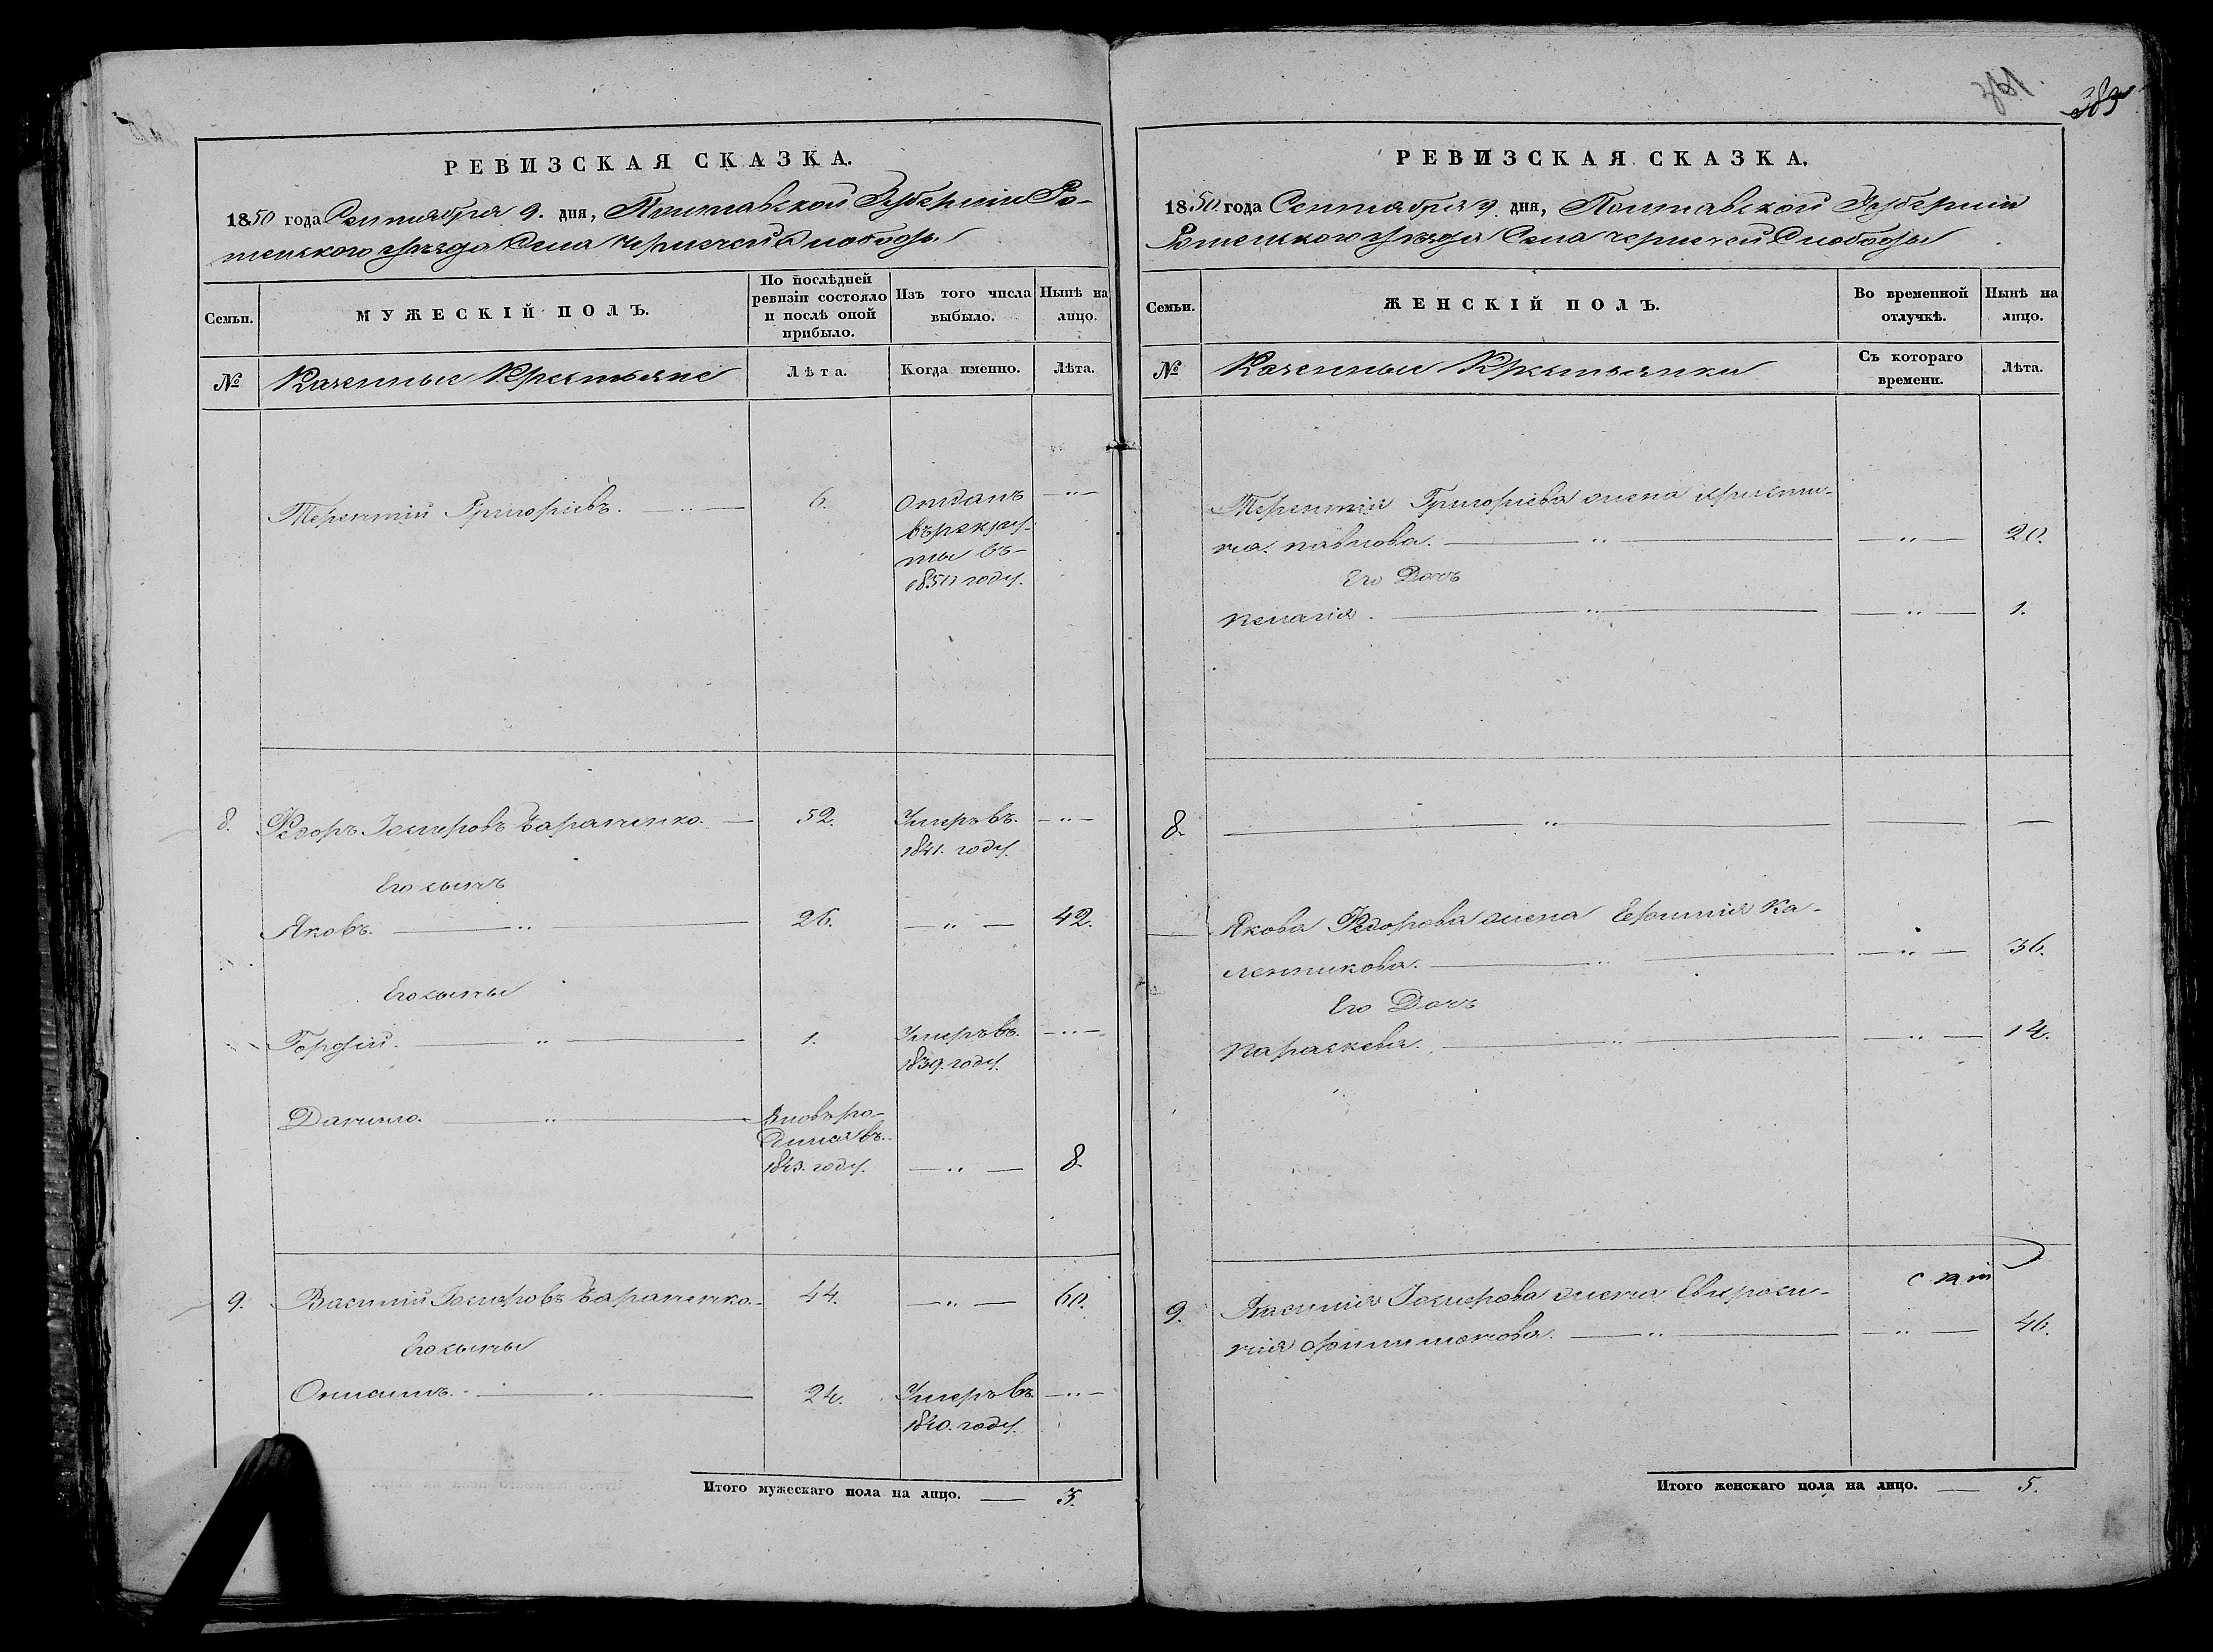 РЕВИЗСКАЯ СКАЗКА.
1850 года Сентября 9. дня, Полтавской Губерніи Ро-
менского уѣзда Села Чернечей Слободы
Семьи.
МУЖЕСКІЙ ПОЛЪ.
По послѣдней
ревизіи состояло
и послѣ оной
прибыло.
Изъ того числа
выбыло.
Нынѣ на
лицо.
№
Казенные Крестьяне
Лѣта.
Когда именно.
Лѣта.
Терентій Григоріевъ. 6. Отданъ
въ рекру-
ты въ
1850 году.
8. Федоръ Іосифовъ Бараненко. 52. Умеръ въ
1841. году.
Его сынъ
Яковъ. 26. 42.
Его сыны
Гордій. 1. Умеръ въ
1839. году.
Данило. Вновь ро-
дился въ
1843. году. 8.
9. Василій Іосифовъ Бараненко. 44. 60.
Его сыны
Игнатъ. 24. Умеръ въ
1840. году.
Итого мужескаго пола на лицо. 3.
385
РЕВИЗСКАЯ СКАЗКА.
1850 года Сентября 9. дня, Полтавской Губерніи
Роменского уѣзда Села Чернечей Слободы
Семьи.
ЖЕНСКІЙ ПОЛЪ.
Во временной
отлучкѣ.
Нынѣ на
лицо.
№
Казенные Крестьянки
Съ котораго
времени.
Лѣта.
Терентія Григоріева жена Христи-
на Павлова. 20.
Его Дочь
Пелагія. 1.
8.
Якова Федорова жена Ефимія Ка-
ленникова. 36.
Его Дочь
Параскева. 14.
9. Василія Іосифова жена Евфроси-
нія Филимонова. 46.
Итого женскаго пола на лицо. 5.